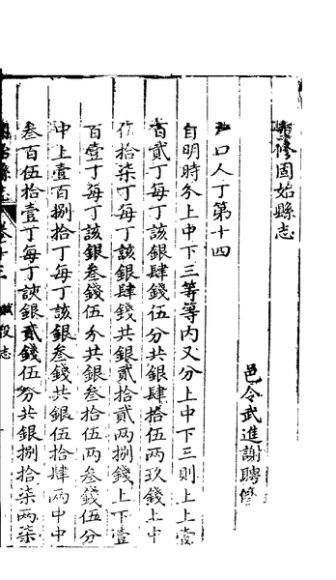 重修固始縣志
邑令武進謝聘修
戶口人丁第十四
自明時分上中下三等等內又分上中下三則上上壹
百貳丁每丁該銀肆錢伍分共銀肆拾伍兩玖錢上中
伍拾柒丁每丁該銀肆錢共銀貳拾貳兩捌錢上下壹
百壹丁每丁該銀叄錢伍分共銀叄拾伍兩叄錢伍分
中上壹百捌拾丁每丁該銀叄錢共銀伍拾肆兩中中
叄百伍拾壹丁每丁該銀貳錢伍分共銀捌拾柒兩柒
始縣志